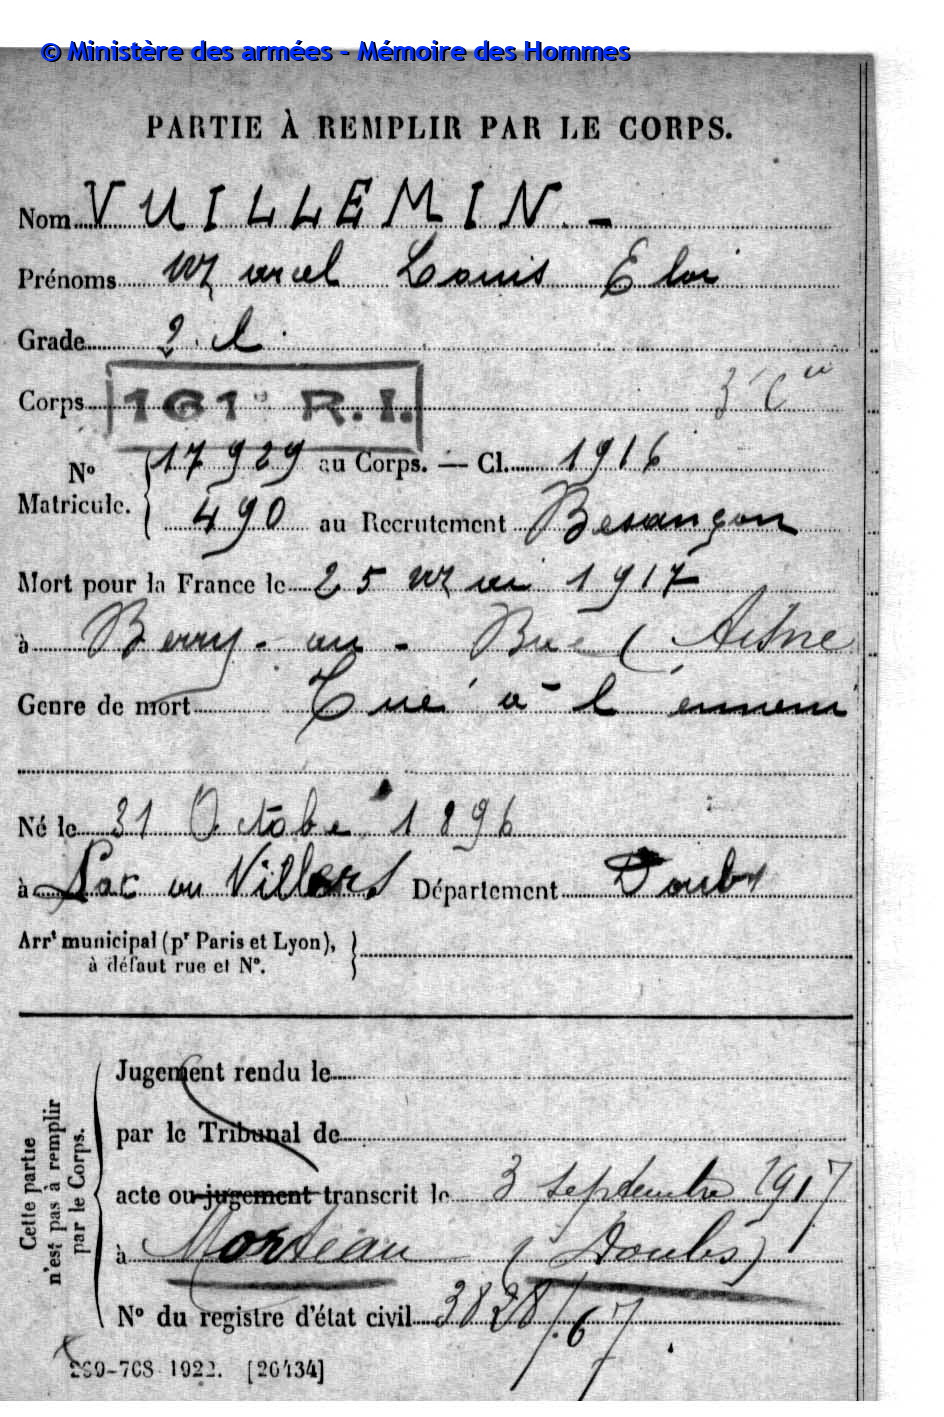 © Ministère des armées - Mémoire des Hommes
PARTIE À REMPLIR PAR LE CORPS.
Nom VUILLEMIN.-
Prénoms Marcel Louis Eloi
Grade 2. cl.
Corps 161e R.I. 3e Cie
No Matricule. { 17929 au Corps. — Cl. 1916
490 au Recrutement Besançon
Mort pour la France le 25 Mai 1917
à Berry-au-Bac (Aisne
Genre de mort Tué à l'ennemi
Né le 31 Octobre 1896
à Lac ou Villers Département Doubs
Arrt municipal (pr Paris et Lyon),
à défaut rue et No.
Cette partie
n'est pas à remplir
par le Corps.
Jugement rendu le
par le Tribunal de
acte ou jugement transcrit le 3 septembre 1917
à Morteau (Doubs)
No du registre d'état civil 3828/67
1922. [26434]